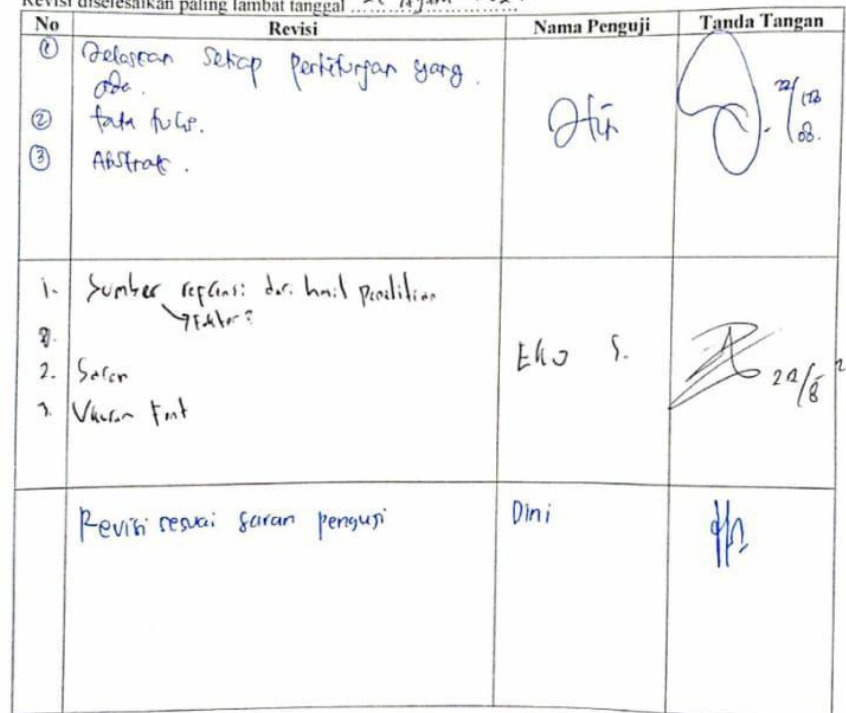 Revisi diselesaikan paling lambat tanggal
No Revisi Nama Penguji Tanda Tangan
① Jelaskan setiap perhitungan yang
ada.
② tata tulis.
③ Abstrak.
22/
08.
1. Sumber referensi dari hasil penelitian
Eko S.
2. Saran
3. Ukuran Font
Revisi sesuai saran penguji Dini